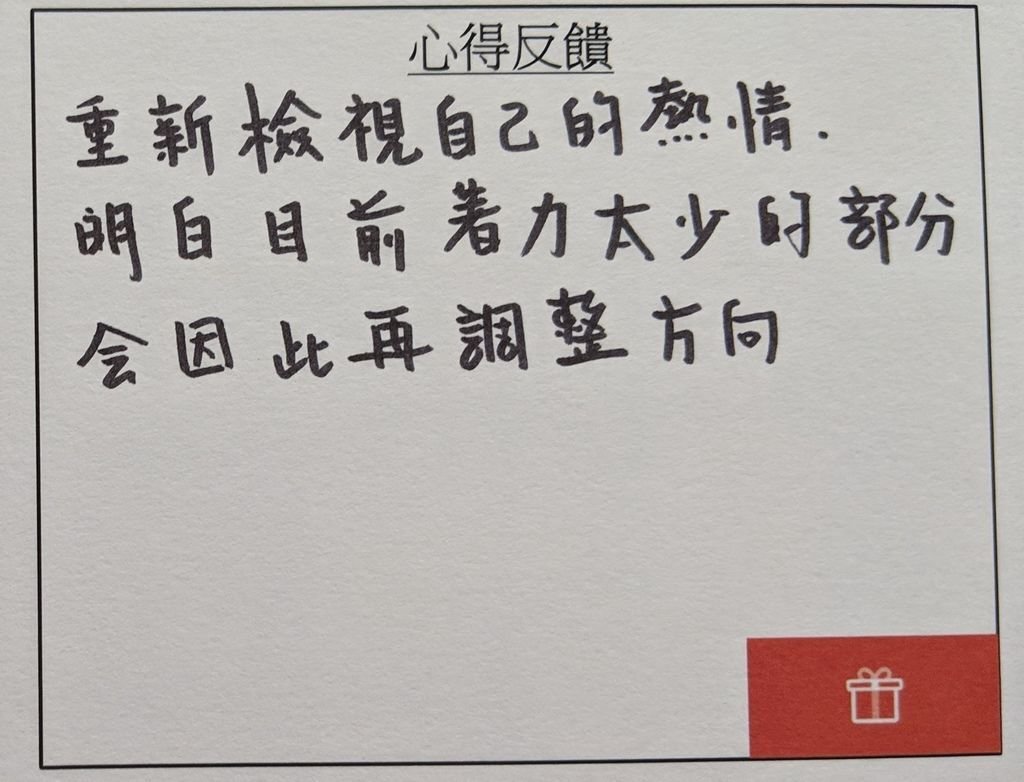 心得反饋
重新檢視自己的熱情.
明白目前着力太少的部分
会因此再調整方向